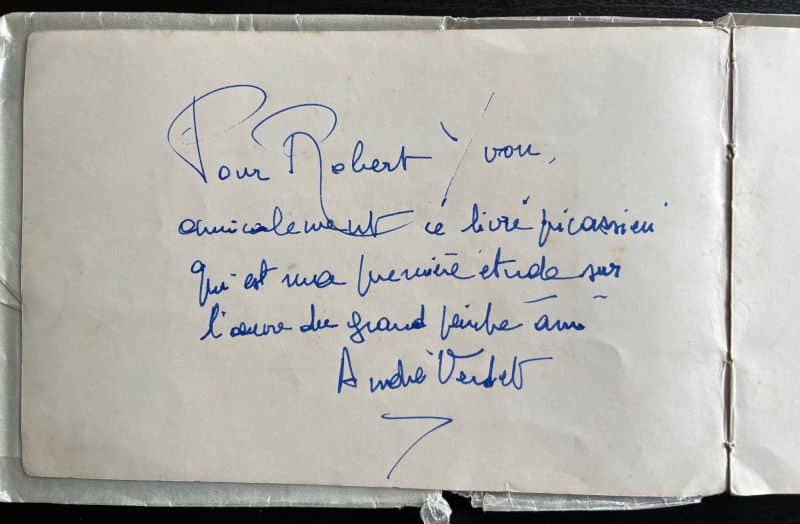 Pour Robert Yvon,
amicalement ce livre picassien
qui est ma première étude sur
l'œuvre du grand peintre ami
André Verdet